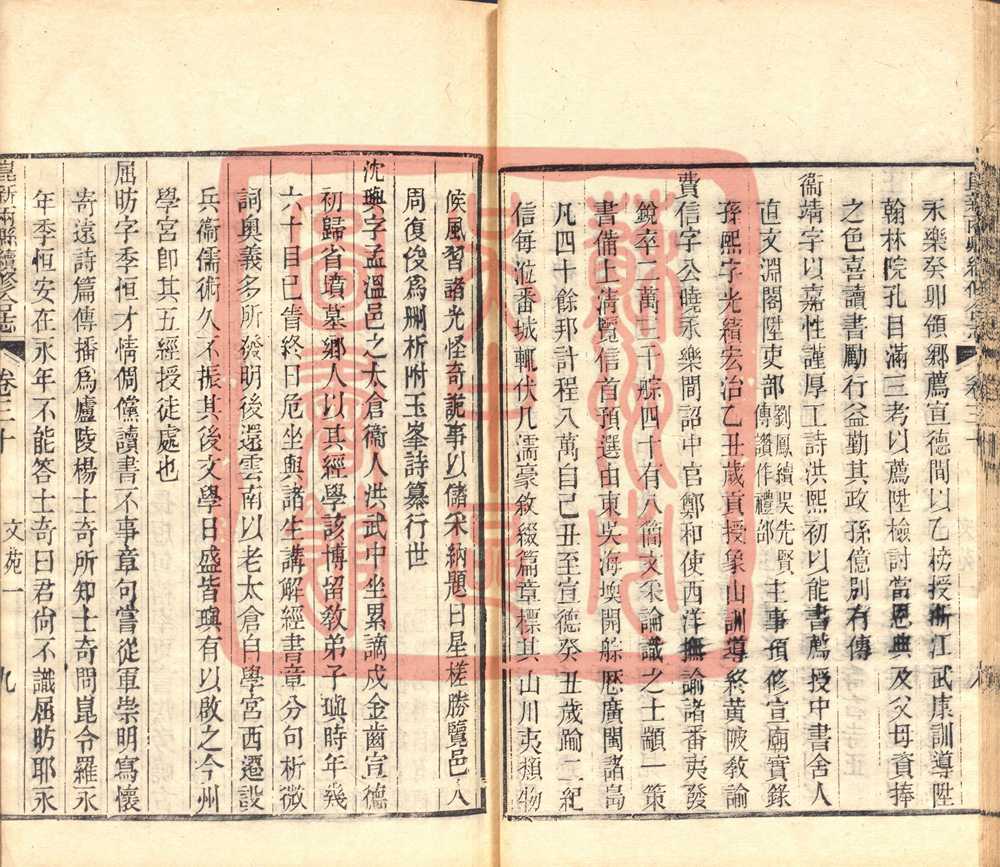 永樂癸卯領鄉薦宣德間以乙榜授浙江武康訓導陞
翰林院孔目滿三考以薦陞檢討當恩典及父母賫捧
之色喜讀書勵行益勤其政孫億別有傳
衞靖字以嘉性謹厚工詩洪熙初以能書薦授中書舍人
直文淵閣陞吏部劉鳳續吳先賢傳讚作禮部主事預修宣廟實錄
孫熙字光績宏治乙丑歲貢授象山訓導終黃陂教諭
費信字公曉永樂間詔中官鄭和使西洋撫諭諸番夷發
銳卒二萬三千艅四十有八簡文采論識之士顓一策
書備上清覽信首預選由東吳海堧開䑸歷廣閩諸島
凡四十餘邦計程八萬自己丑至宣德癸丑歲踰二紀
信每涖番城輒伏几濡豪敘綴篇章標其山川夷類物
候風習諸光怪奇詭事以儲采納題曰星槎勝覽邑人
周復俊爲刪析附玉峯詩纂行世
沈璵字孟溫邑之太倉衞人洪武中坐累謫戍金齒宣德
初歸省墳墓鄉人以其經學該博留教弟子璵時年幾
六十目已眚終日危坐與諸生講解經書章分句析微
詞奧義多所發明後還雲南以老太倉自學宮西遷設
兵衞儒術久不振其後文學日盛皆璵有以啟之今州
學宮卽其五經授徒處也
屈昉字季恒才情倜儻讀書不事章句嘗從軍崇明寫懷
寄遠詩篇傳播爲廬陵楊士奇所知士奇問崑令羅永
年季恒安在永年不能答士奇曰君尙不識屈昉耶永
崑新兩縣續修合志
卷三十
文苑一
九